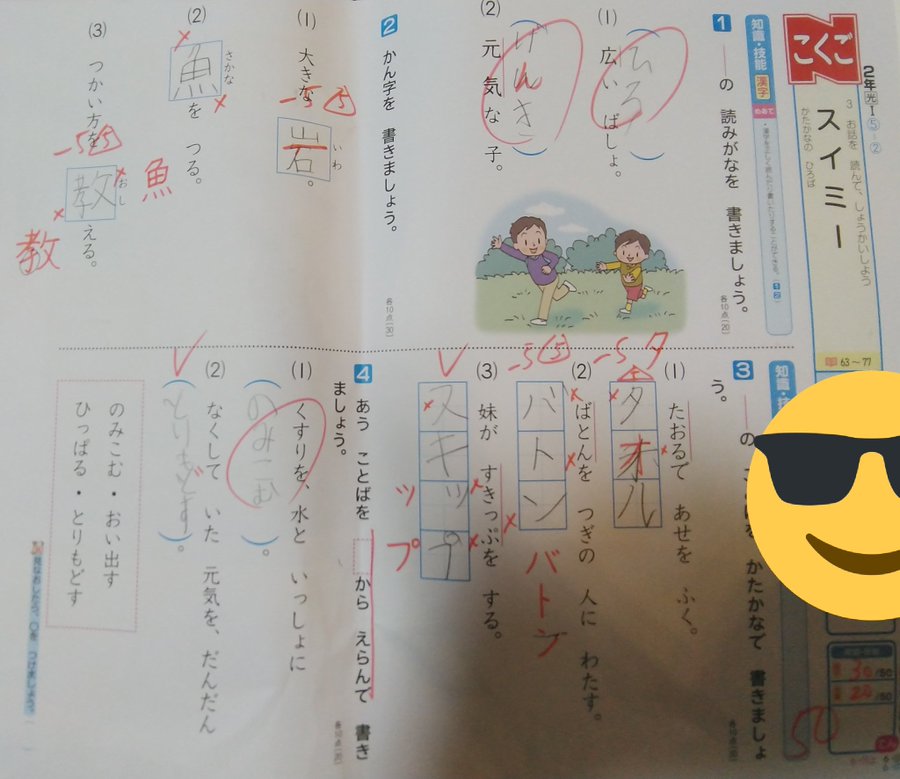 こくご
2年 光Ⅰ ⑤-②
3 お話を 読んで、しょうかいしよう
かたかなの ひろば
スイミー
63～77
知識・技能 漢字
めあて
1 ――の 読みがなを 書きましょう。
各10点(20)
(1) 広い ばしょ。
ひろ
(2) 元気な 子。
げんき
2 かん字を 書きましょう。
各10点(30)
(1) 大きな 岩。
いわ
-5 5
(2) 魚を つる。
さかな
魚
(3) つかい方を 教える。
おし
-5 5
教
知識・技
3 ――の
かたかなで 書きましょう。
(1) たおるで あせを ふく。
タオル
-5 タ
(2) ばとんを つぎの 人に わたす。
バトン
-5 5
バトン
(3) 妹が すきっぷを する。
スキップ
ップ
4 あう ことばを から えらんで 書きましょう。
各10点(20)
(1) くすりを、水と いっしょに
(のみこむ)。
(2) なくして いた 元気を、だんだん
( )。
のみこむ・おい出す
ひっぱる・とりもどす
見なおしたら、○を つけましょう。
30/50
20/50
50